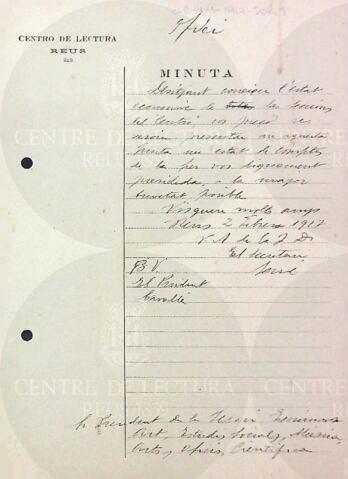 Ofici
CENTRO DE LECTURA
REUS
MINUTA
Desitjant coneixer l'estat
economic de la seccions
del Centro vos prego es
serveixi presentar an aquesta
Junta un estat de comptes
de la per vos dignament
presidida, a la major
brevetat posible
Visqueu molts anys
Reus 2 Febrer 1917
P. A. de la J. D.
El Secretari
B. V.
El President
Cavallé
Sr. President de la Secció
Art, Estudis Socials, Musica,
Arts y Oficis, Cientifica
CENTRE DE LECTURA
CENTRE DE LECTURA